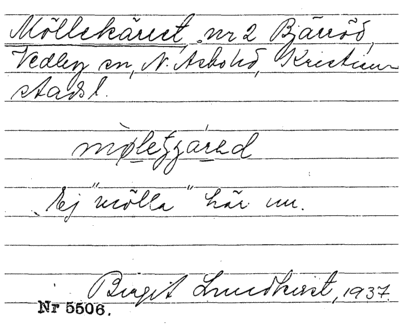 Möllekäret, nr 2 Bjärröd,
Vedby sn, N. Åsbo hd, Kristian-
stads l.
Ej "mölla" här nu.
Birgit Lundkvist, 1937.
Nr 5506.